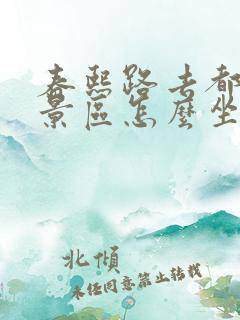 春熙路去都
景區怎麼坐
北傾
未任同意禁止转载